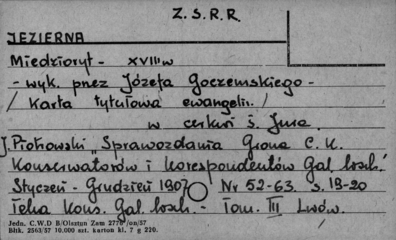 Z.S.R.R.
JEZIERNA
Miedzioryt - XVIII w
- wyk. przez Józefa Goczemskiego -
/ karta tytułowa ewangelii. /
w cerkwi ś. Jura.
J. Piotrowski „Sprawozdania Grona C.K.
Konserwatorów i korespondentów Gal. wsch."
Styczeń - Grudzień 1907 Nr 52-63. s. 19-20
Teka Kons. Gal. wsch. - Tom. III Lwów.
Jedn. C.W.D B/Olsztyn Zam 2778/on/57
Blik. 2563/57 10.000 szt. karton kl. 7 g 220.